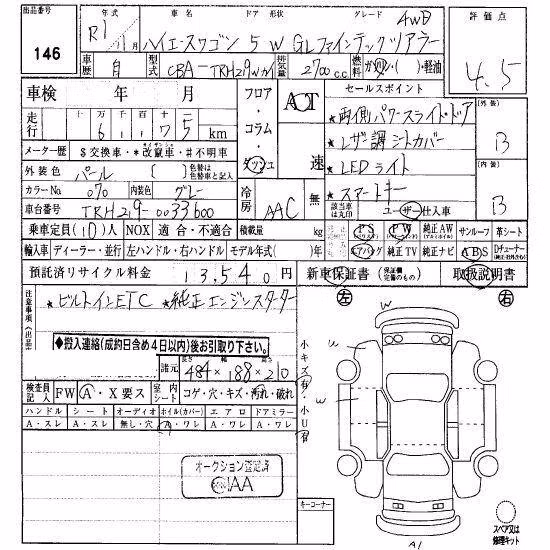 出品番号 年式 車名 ドア 形状 グレード 評価点
146 R1 年 11月 ハイエースワゴン 5 W GLファインテックツアラー 4WD 4.5
車歴 自 型式 CBA-TRH219W 排気量 2700 c.c. 燃料 ガソリン・( )・軽油
車検 年 月 フロア・コラム・ダッシュ AT 速 セールスポイント 外装 B
走行 十 万 千 百 十 一 6,175 km ★両側パワースライドドア
メーター歴 $交換車・*改竄車・#不明車 ★レザー調シートカバー 内装 B
外装色 パール ( ) 色替車は元色と色替車と記入 ★LEDライト
カラーNo 070 内装色 グレー 冷房 AAC 無 ★スマートキー
車台番号 TRH219-0033600 該当装備は丸印 ユーザー・仕入車
乗車定員(10)人 NOX 適合・不適合 積載量 kg PS PW 純正AW サンルーフ 革シート
輸入車 ディーラー・並行 左ハンドル・右ハンドル モデル年式( )年 エアバッグ 純正TV 純正ナビ ABS Dチューナー
預託済リサイクル料金 13,540 円 新車保証書 (保証書 定備のもの) 取扱説明書
注意事項 ★ビルトインETC ★純正エンジンスターター 左 右
◆搬入連絡(成約日含め4日以内)後お引取り下さい。
諸元 長さ 幅 高さ 484×188×210 小キズ有・小U有
検査員記入 FW A・X要ス 室内シート コゲ・穴・キズ・汚れ・破れ
ハンドル シート オーディオ ホイル(カバー) エアロ ドアミラー
A・スレ A・スレ 無し・穴 A・ワレ A・ワレ A・ワレ
オークション登定済
CIAA
キーコーナー
W
U
W
A1
スペア又は修理キット